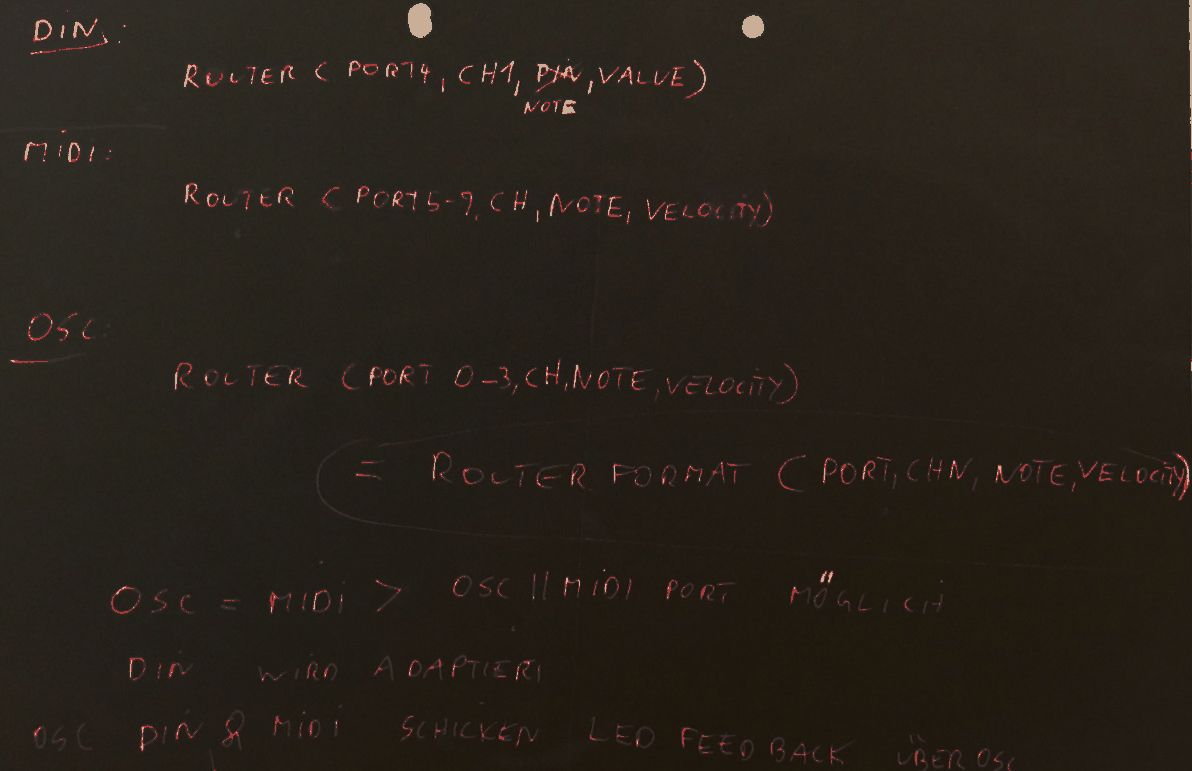 DIN:
ROUTER ( PORT4, CH1, PIN, VALUE)
NOTE
MIDI:
ROUTER ( PORT 5-7, CH, NOTE, VELOCITY)
OSC:
ROUTER (PORT 0-3, CH, NOTE, VELOCITY)
= ROUTER FORMAT ( PORT, CHN, NOTE, VELOCITY)
OSC = MIDI > OSC || MIDI PORT MÖGLICH
DIN WIRD ADAPTIERT
OSC DIN & MIDI SCHICKEN LED FEEDBACK ÜBER OSC